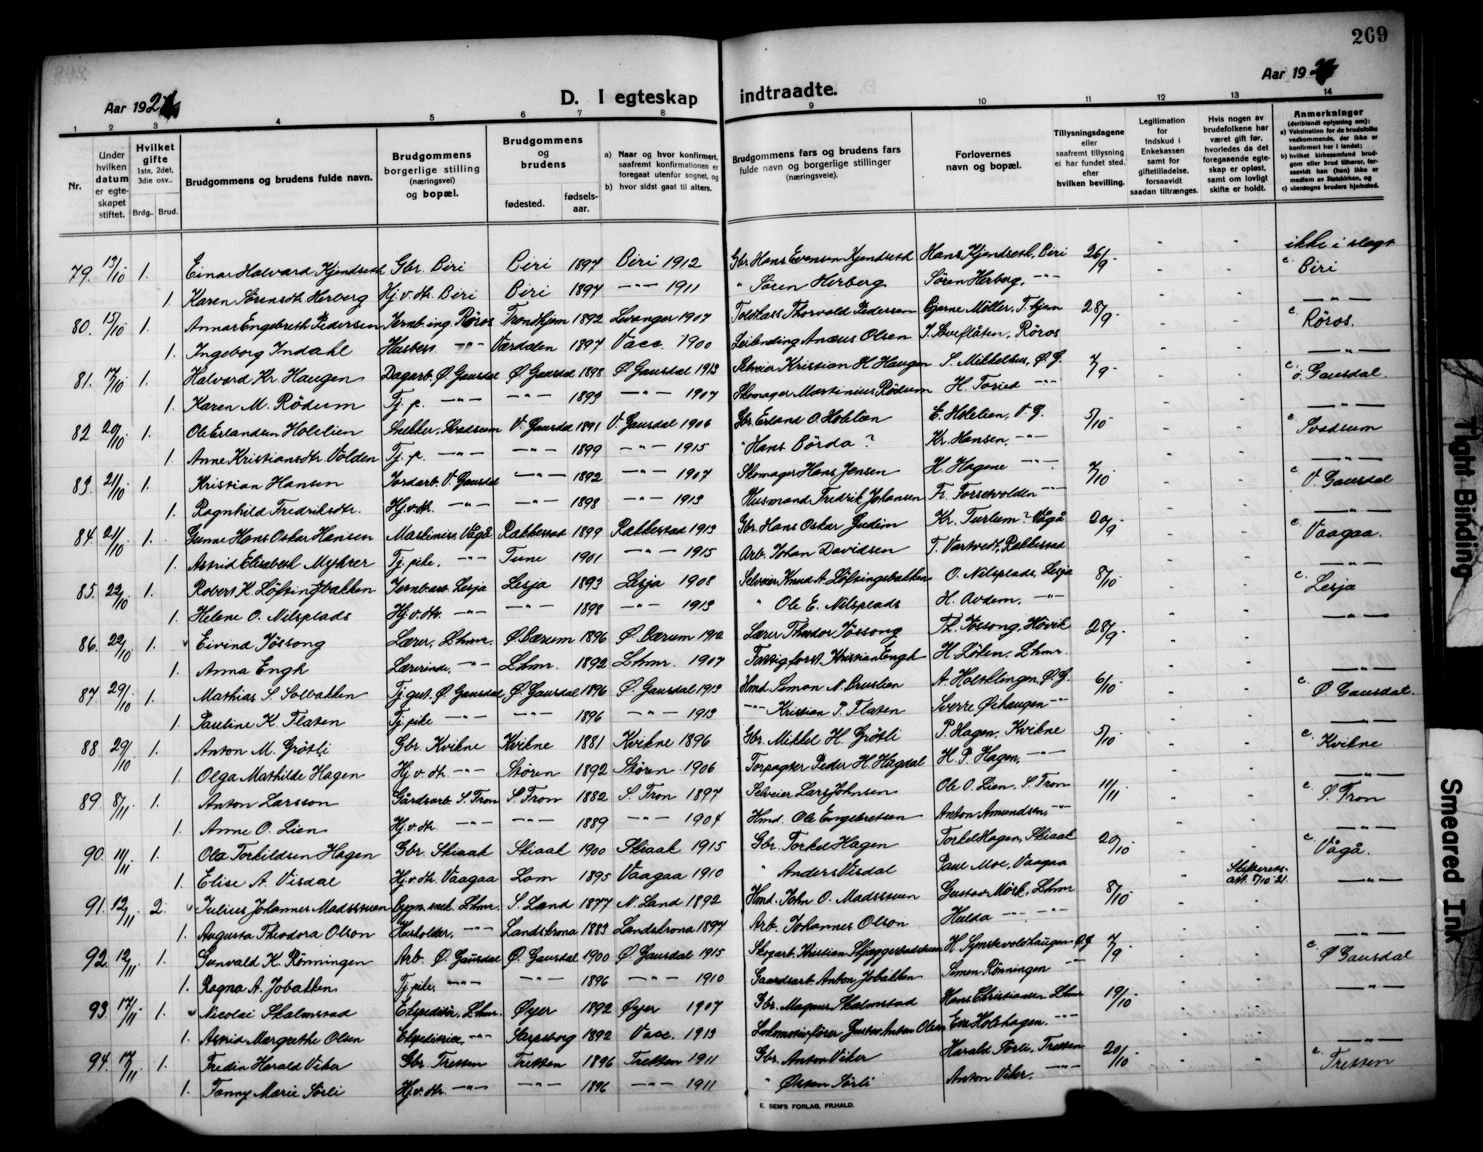 269
Aar 192
Aar 19
D. I egteskap indtraadte.
1 2 3 4 5 6 7 8 9 10 11 12 13 14
Nr.
Under hvilken datum er egteskapet stiftet.
Hvilket gifte 1ste, 2det, 3die osv..
Brdg. Brud.
Brudgommens og brudens fulde navn.
Brudgommens borgerlige stilling (næringsvei) og bopæl.
Brudgommens og brudens
fødested. fødselsaar.
a) Naar og hvor konfirmert, saafremt konfirmationen er foregaat utenfor sognet, og
b) hvor sidst gaat til alters.
Brudgommens fars og brudens fars fulde navn og borgerlige stillinger (næringsveie).
Forlovernes navn og bopæl.
Tillysningsdagene eller saafremt tillysning ei har fundet sted. efter hvilken bevilling.
Legitimation for Indskud i Enkekassen samt for giftetilladelse, forsaavidt saadan tiltrænges.
Hvis nogen av brudefolkene har været gift før, hvorledes da det foregaaende egteskap er opløst, samt om lovligt skifte er holdt.
Anmerkninger
(deriblandt oplysning om):
a) Vaksination for de brudefolks vedkommende, der ikke er konfirmert her i landet;
b) hvilket kirkesamfund brudgom eller brud tilhører, forsaavidt han (hun) ikke er medlem av Statskirken, og
c) utensogns bruders hjemsted.
ikke i slegt
79. 13/10 1. Einar Halvard Kjendseth Gbr. Biri Biri 1897 Biri 1912 Gbr. Hans Evensen Kjendseth Hans Kjendseth, Biri 26/9 - - c Biri
1. Karen Sørensdtr. Herberg Hj.v.dtr. Biri Biri 1897 —"— 1911 " Søren Herberg Søren Herberg, —"— - -
80. 15/10 1. Annar Engebreth Pedersen Jernb.ing. Røros Trondhjem 1892 Levanger 1907 Toldkass. Thorvald Pedersen Bjarne Möller, T.hjem 28/9 - - c Røros.
1. Ingeborg Indahl Husbest. —"— Værdalen 1897 Vacc. 1900 Leilending Anæus Olsen Røros - - —"—
81. 17/10 1. Halvard Kr. Haugen Dagarb. Ø. Gausdal Ø. Gausdal 1898 Ø. Gausdal 1913 Selveier Kristian H. Haugen S. Mikkelhus, Ø.G. 7/9 - - c Ø. Gausdal.
1. Karen M. Rødum Tj.p. —"— —"— 1899 —"— 1907 Skomager Martinius Rødum —"— - - —"—
82 20/10 1. Ole Erlandsen Holelien Snekker, Svadsum V. Gausdal 1891 V. Gausdal 1906 Gbr. Erland O. Holelien E. Holelien, V.G. 5/10 - - Svadsum
1. Anne Kristiansdtr. Volden Tj.p. —"— —"— 1899 —"— 1915 " Hans Børda? Kr. Hansen, —"— - - —"—
83. 21/10 1. Kristian Hansen Jordarb. V. Gausdal —"— 1892 —"— 1907 Skomager Hans Jensen H. Hagene —"— 7/10 - - c V. Gausdal
1. Ragnhild Fredriksdtr. Hj.v.dtr. —"— —"— 1898 —"— 1913 Husmand Fredrik Johansen Fr. Forsetvolden —"— - - —"—
84. 21/10 1. Gunne Hans Oskar Hansen Maskiniss, Vågå Rakkestad 1899 Rakkestad 1913 Gbr. Hans Oskar Gudim Kr. Turlum? Vågå 20/9 - - c Vaagaa.
1. Astrid Elisabeth Myhrer Tj.pike, —"— Tune 1901 —"— 1915 Arb. Johan Davidsen Rakkestad - - —"—
85. 22/10 1. Robert K. Løftingsbakken Jernb.arb. Lesja Lesja 1893 Lesja 1908 Selveier Knud A. Løftingsbakken O. Nilsplads, Lesja 8/10 - - c Lesja
1. Helene O. Nilsplads Hj.v.dtr. —"— —"— 1898 —"— 1913 " Ole E. Nilsplads H. Avdem, —"— - - —"—
86. 22/10 1. Eivind Jøssong Lærer, Lhmr. Ø. Bærum 1896 Ø. Bærum 1912 Lærer Theodor Jøssong Th. Jøssong, Høvik 28/9 - -
1. Anna Engh Lærerinde, —"— Lhmr. 1892 Lhmr. 1907 Fattigforst. Kristian Engh H. Løken, Lhmr. - - —"—
87. 29/10 1. Mathias S. Solbakken Tj.gut, Ø. Gausdal Ø. Gausdal 1896 Ø. Gausdal 1913 Hmd. Simon N. Brustien Ø.G. 6/10 - - c Ø Gausdal.
1. Pauline K. Flaten Tj.pike —"— —"— 1896 —"— 1913 —"— Kristian P. Flaten Sverre Øihaugen —"— - - —"—
88 29/10 1. Anton M. Grøtli Gbr. Kvikne Kvikne 1881 Kvikne 1896 Gbr. Mikkel H. Grøtli P. Hagen, Kvikne 5/10 - - c Kvikne
1. Olga Mathilde Hagen Hj.v.dtr. —"— Støren 1892 Støren 1906 Forpagter Peder H. Hagdal H.P. Hagen, —"— - - —"—
89 8/11 1. Anton Larsson Gårdsarb. S. Fron S. Fron 1882 S. Fron 1897 Selveier Lars Johnsen Ole O. Lien, S. Fron 11/11 - - c S. Fron
1. Anne O. Lien Hj.v.dtr. —"— 1889 —"— 1904 Hmd. Ole Engebretsen Anton Amundsen, —"— - - —"—
90. 11/11 1. Ola Torkildsen Hagen Gbr. Skiaak Skiaak 1900 Skiaak 1915 Gbr. Torkel Hagen Torkel Hagen, Skiaak 20/10 - - c Vågå.
1. Elise A. Visdal Hj.v.dtr. Vaagaa Lom 1895 Vaagaa 1910 " Anders Visdal Paul Moe, Vaagaa - Skifteretsatt. 5/10 21. —"—
91. 12/11 2. Julius Johannes Madsstuen Bygn.snek. Lhmr. S. Land 1877 N. Land 1892 Hmd. John O. Madsstuen Gustav Mørk, Lhmr 8/10 - -
1. Augusta Theodora Olson Husholder., —"— Landskrona 1883 Landskrona 1897 Arb. Johannes Olson Hulda —"— —"— - -
92. 12/11. 1. Gunvald K. Rønningen Arb. Ø. Gausdal Ø. Gausdal 1900 Ø. Gausdal 1915 Skogarb. Kristian Ø.G. 7/9 - - c Ø Gausdal
1. Ragna A. Jobakken Tj.pike, —"— —"— 1896 —"— 1910 Gaardsarb. Anton Jobakken Simen Rønningen —"— - - —"—
93. 17/11. 1. Nicolai Skalmstad Ekspeditør, Lhmr. Øyer 1892 Øyer 1907 Gbr. Magnus Skalmstad Hans Christiansen Lhmr 19/10 - -
1. Astrid Margrethe Olsen Ekspeditrice, —"— Sarpsborg 1892 Vacc. 1913 Lokomotivfører Gustav Anton Olsen Eva Holshagen. —"— - -
94. 17/11. 1. Fredin Harald Viker Gbr. Tretten Tretten 1896 Tretten 1911 Gbr. Anton Viker Harald Sørli, Tretten 20/10 - - c Tretten
1. Fanny Marie Sørli Hj.v.dtr. —"— —"— 1896 —"— 1911 " Østen Sørli Anton Viker, —"— - -
E. SEM'S FORLAG, FR.HALD.
Tight Binding
Smeared Ink